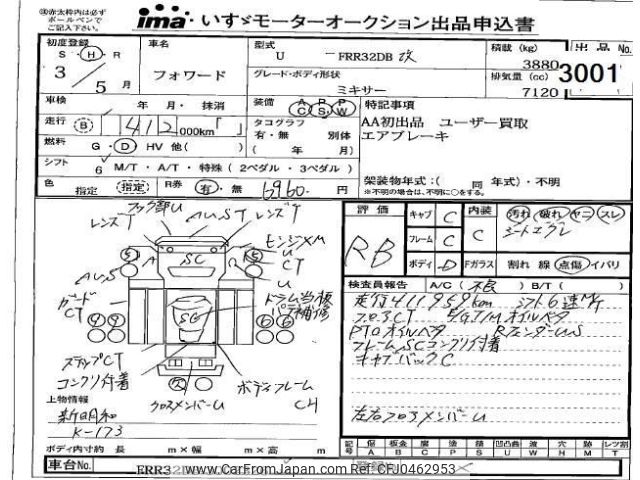 ㊟赤太枠内は必ず
ボールペンで
ご記入下さい。
ima いすゞモーターオークション出品申込書
初度登録
S・H・R
3／5月
車名
フォワード
型式
U － FRR32DB 改
グレード・ボディ形状
ミキサー
積載 (kg)
3880
排気量 (cc)
7120
出品No.
3001
車検 年 月・抹消
走行 B 412,000km「 」
燃料 G・D・HV 他( )
シフト 6 M/T・A/T・特殊(2ペダル・3ペダル)
装備 AC PS PW
タコグラフ
有・無 別体
( 年 月)
特記事項
AA初出品 ユーザー買取
エアブレーキ
架装物年式：( 同 年式)・不明
※不明の場合は、不明に○をする。
色 指定 (指定) R券 有・無 6960 円
評価
RB
キャブ C
フレーム C
ボディ D
内装
C
汚れ 破れ ヤニ スレ
シートエグレ
Fガラス 割れ 線 点傷 イバリ
検査員報告 A/C( 不良 ) B/T( )
走行411959km シフト6速M/T
フロアCT E/G T/Mオイルベタ
PTOオイルベタ RフェンダーUS
フレームSCコンクリ付着
キャブバックC
左右フロアメンバーU
レンズT
フック部U
AUST
レンズT
モンジXM
U
CT
U
S
A
SC
R
S
AUS
ガードCT
ドラム当板
パテ補修
SC
9 9
6 6
ステップCT
コンクリ付着
クロスメンバーU
ボディフレーム
CH
上物情報
新明和
K-173
ボディ内寸約 長 m×幅 m×高 m
記号 傷A 板金B 腐C 塗P 錆S 凹凸曲U 波W 穴H 跡M レツ割T
車台No. FRR32DB
登録No.
www.CarFromJapan.com Ref: CFJ0462953